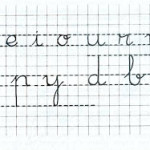 e i o u r
p y d b